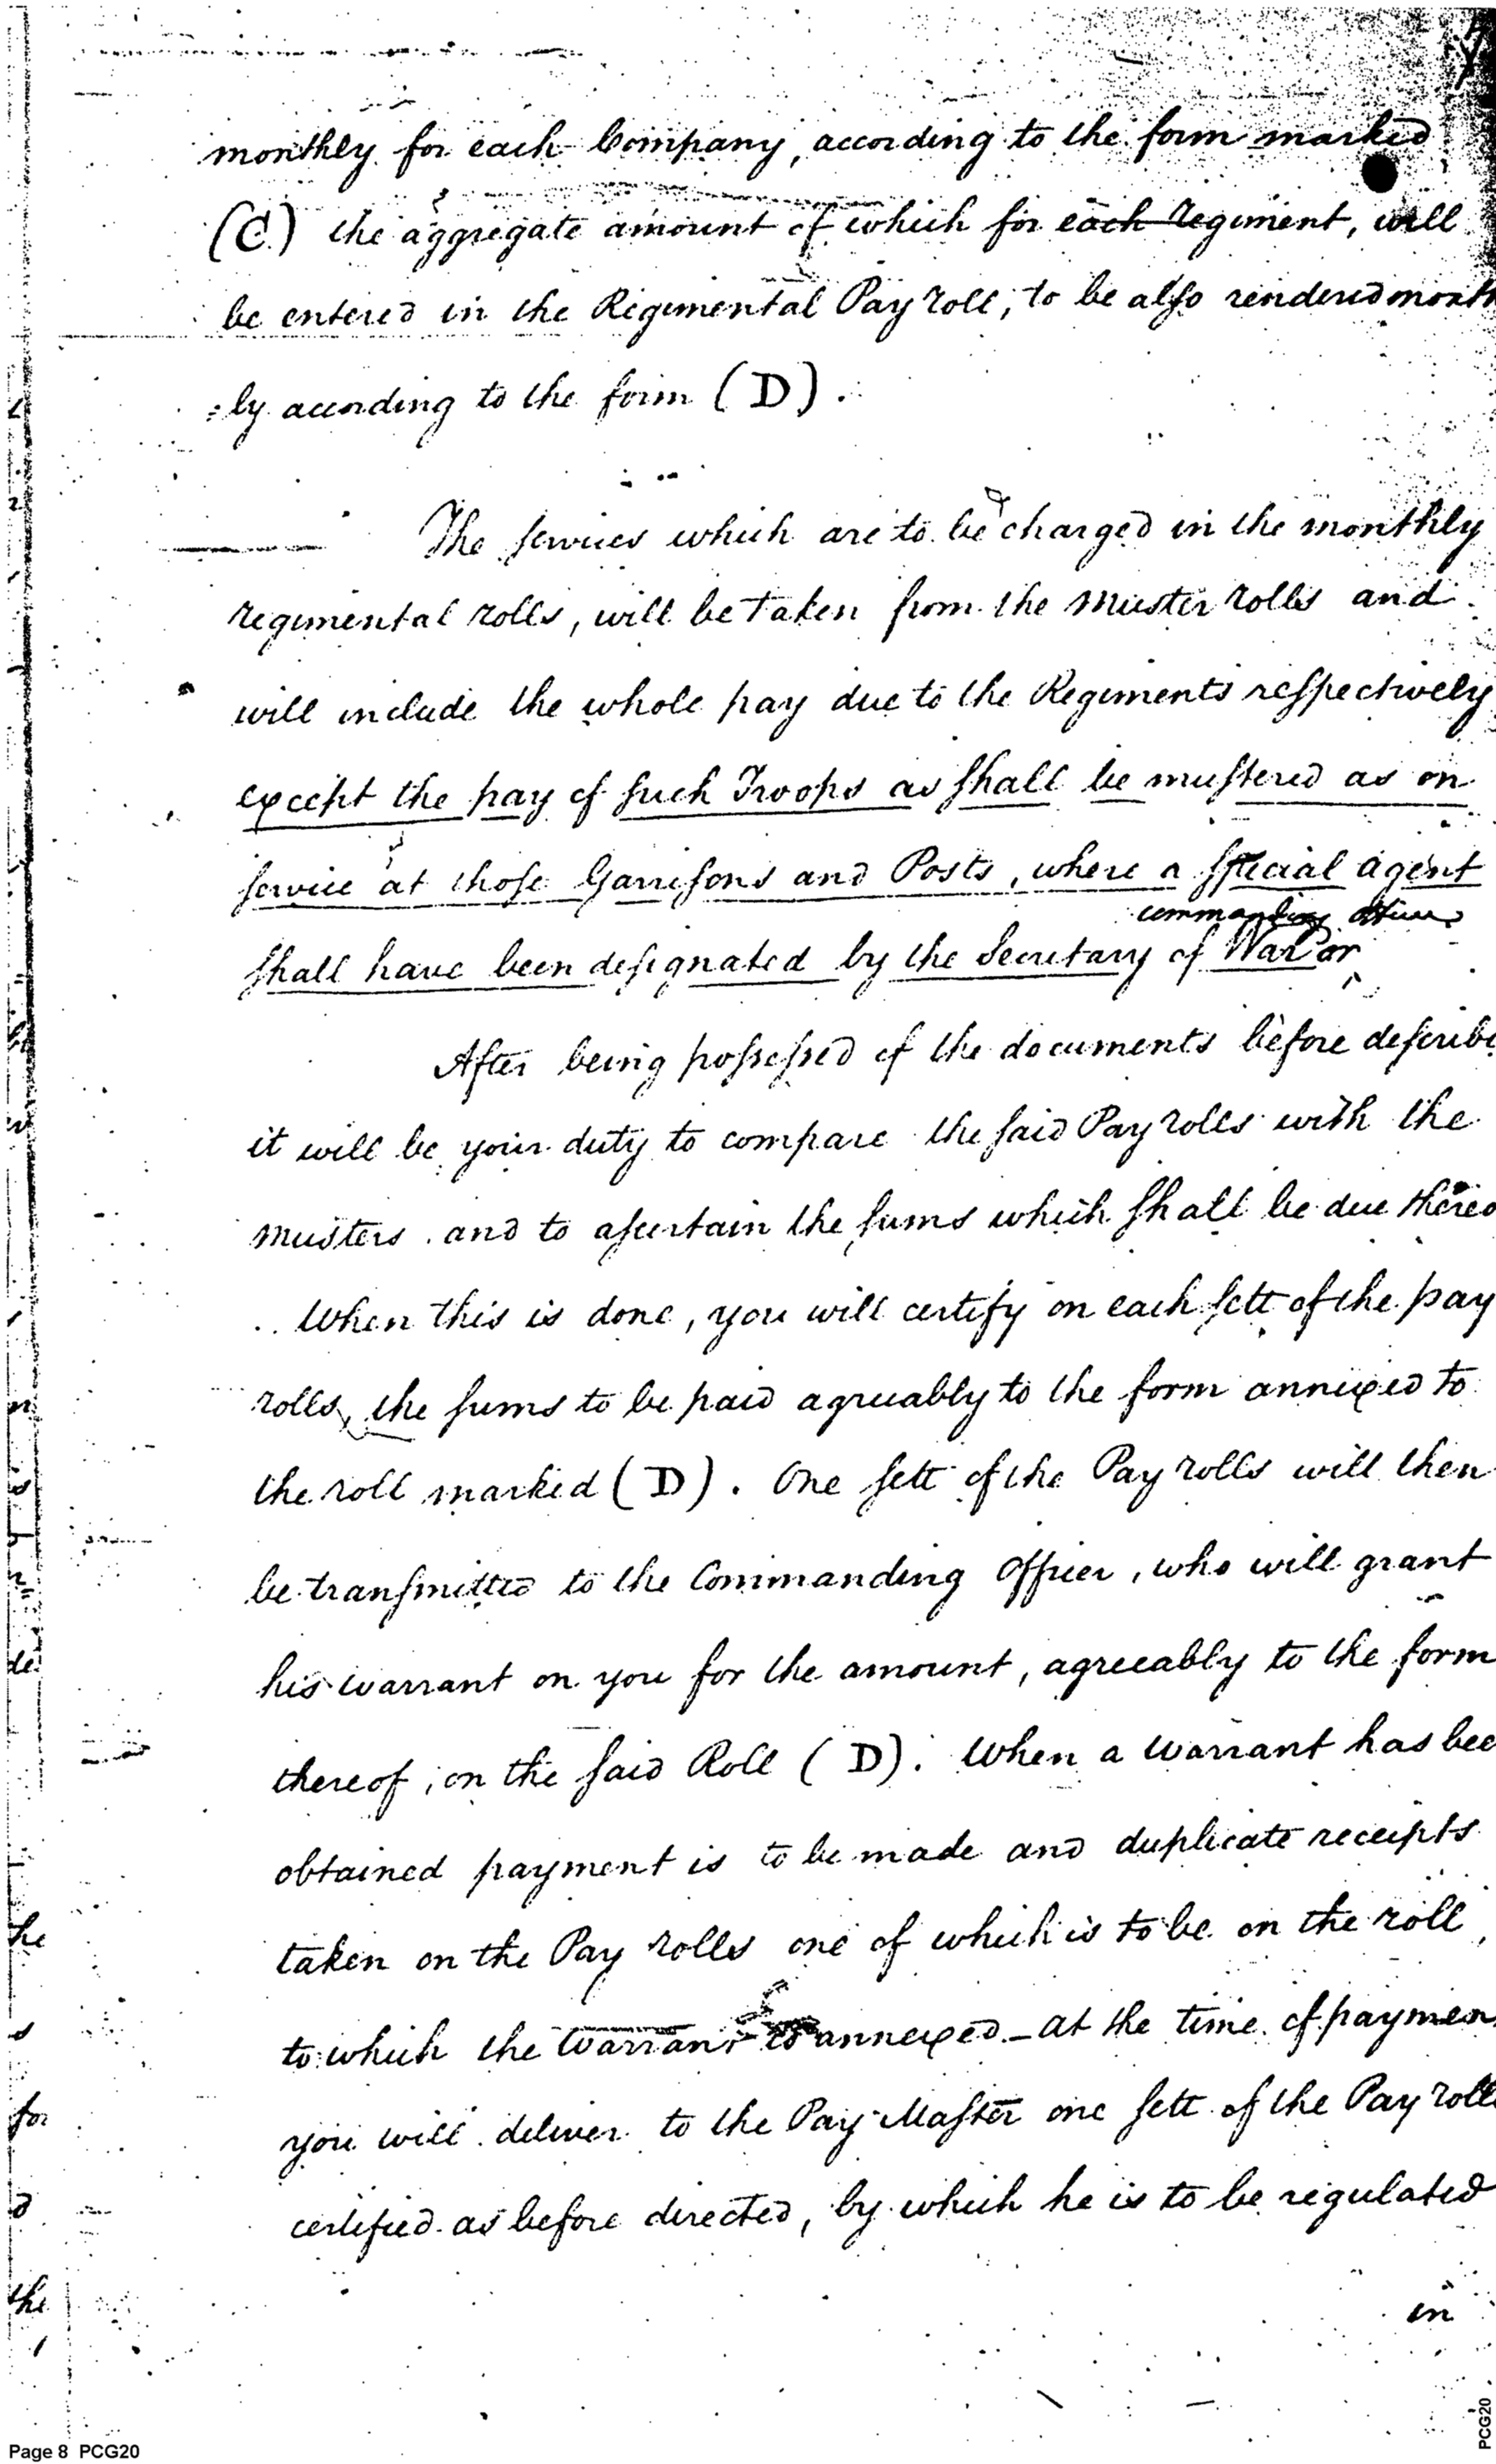 monthly for each Company, according to the form marked
(C) the aggregate amount of which for each regiment, will
be entered in the Regimental Pay roll, to be also rendered month
:ly according to the form (D).
The services which are to be charged in the monthly
regimental rolls, will be taken from the muster rolls and
will include the whole pay due to the Regiments respectively
except the pay of such Troops as shall be mustered as on
service at those Garrisons and Posts, where a special agent
commanding officer
shall have been designated by the Secretary of War or
After being possessed of the documents before describe
it will be your duty to compare the said Pay rolls with the
musters and to ascertain the sums which shall be due thereo
When this is done, you will certify on each sett of the pay
rolls, the sums to be paid agreeably to the form annexed to
the roll marked (D). One sett of the Pay rolls will then
be transmitted to the Commanding Officer, who will grant
his warrant on you for the amount, agreeably to the form
thereof, on the said Roll (D). When a warrant has bee
obtained payment is to be made and duplicate receipts
taken on the Pay rolls one of which is to be on the roll,
to which the warrant is annexed - at the time of paymen
you will deliver to the Pay Master one sett of the Pay rolls
certified as before directed, by which he is to be regulated
in
he
for
the
Page 8 PCG20
PCG20